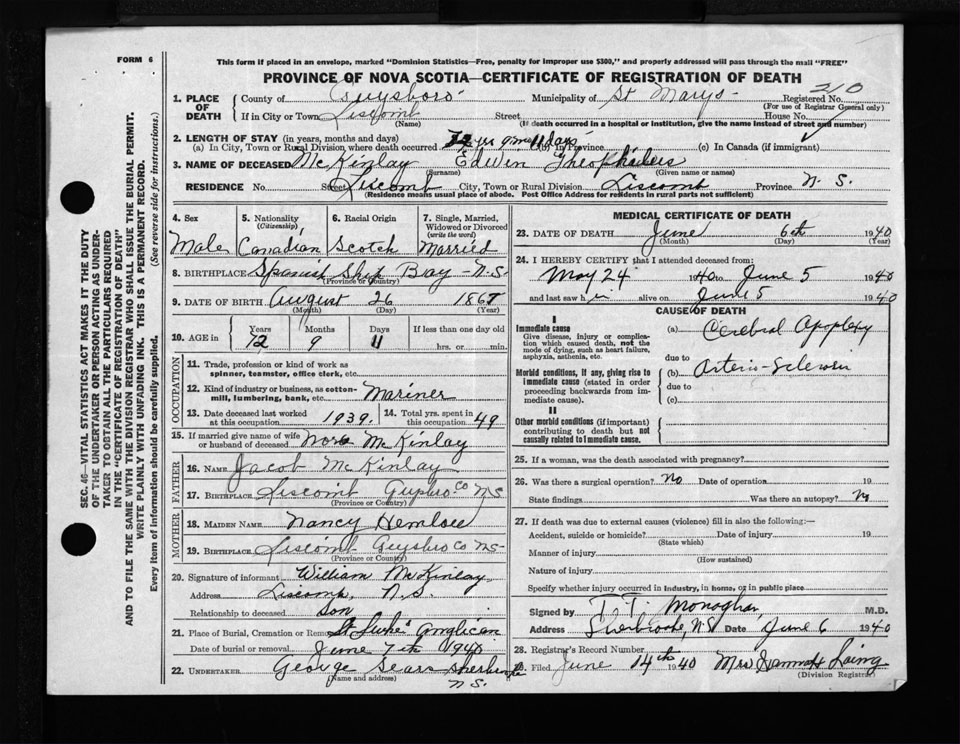 FORM 6
This form if placed in an envelope, marked "Dominion Statistics—Free, penalty for improper use $300," and properly addressed will pass through the mail "FREE"
PROVINCE OF NOVA SCOTIA—CERTIFICATE OF REGISTRATION OF DEATH
210
1. PLACE OF DEATH
County of Guysboro Municipality of St Marys Registered No.
(For use of Registrar General only)
If in City or Town Liscomb Street House No.
(Name) (If death occurred in a hospital or institution, give the name instead of street and number)
2. LENGTH OF STAY (in years, months and days)
(a) In City, Town or Rural Division where death occurred 72 yrs 9 mos 11 days (b) In Province (c) In Canada (if immigrant)
3. NAME OF DECEASED McKinlay Edwin
(Surname) (Given name or names)
RESIDENCE No. Street Liscomb City, Town or Rural Division Liscomb Province N. S.
(Residence means usual place of abode. Post Office Address for residents in rural parts not sufficient)
4. Sex
Male
5. Nationality
(Citizenship)
Canadian
6. Racial Origin
Scotch
7. Single, Married, Widowed or Divorced
(write the word)
Married
8. BIRTHPLACE Spanish Ship Bay - N.S.
(Province or Country)
9. DATE OF BIRTH August 26 1867
(Month) (Day) (Year)
10. AGE in
Years Months Days If less than one day old
72 9 11 hrs. or min.
OCCUPATION
11. Trade, profession or kind of work as
spinner, teamster, office clerk, etc.
12. Kind of industry or business, as cotton-
mill, lumbering, bank, etc. Mariner
13. Date deceased last worked
at this occupation 1939.
14. Total yrs. spent in
this occupation 49
15. If married give name of wife
or husband of deceased Nora McKinlay
FATHER
16. NAME Jacob McKinlay
17. BIRTHPLACE Liscomb Guysbro Co NS
(Province or Country)
MOTHER
18. MAIDEN NAME Nancy Hemloe
19. BIRTHPLACE Liscomb Guysbro Co NS
(Province or Country)
20. Signature of informant William McKinlay
Address Liscomb, N.S.
Relationship to deceased son
21. Place of Burial, Cremation or Removal St Lukes Anglican
Date of burial or removal June 7th 1940
22. UNDERTAKER George Sears Sherbrooke
(Name and address) N.S.
MEDICAL CERTIFICATE OF DEATH
23. DATE OF DEATH June 6th 1940
(Month) (Day) (Year)
24. I HEREBY CERTIFY that I attended deceased from:
May 24 1940 to June 5 1940
and last saw him alive on June 5 1940
CAUSE OF DEATH
I
Immediate cause
Give disease, injury or complication which caused death, not the mode of dying, such as heart failure, asphyxia, asthenia, etc.
(a) Cerebral Apoplexy
due to
Morbid conditions, if any, giving rise to immediate cause (stated in order proceeding backwards from immediate cause).
(b) Arterio-Sclerosis
due to
(c)
II
Other morbid conditions (if important) contributing to death but not causally related to immediate cause.
25. If a woman, was the death associated with pregnancy?
26. Was there a surgical operation? No Date of operation 19
State findings Was there an autopsy? No
27. If death was due to external causes (violence) fill in also the following:—
Accident, suicide or homicide? Date of injury 19
(State which)
Manner of injury
(How sustained)
Nature of injury
Specify whether injury occurred in industry, in home, or in public place
Signed by T.T. Monaghan M.D.
Address Sherbrooke, N.S. Date June 6 1940
28. Registrar's Record Number
29. Filed June 14th 1940 Mrs Hannah Laing
(Division Registrar)
SEC. 46—VITAL STATISTICS ACT MAKES IT THE DUTY
OF THE UNDERTAKER OR PERSON ACTING AS UNDER-
TAKER TO OBTAIN ALL THE PARTICULARS REQUIRED
IN THE "CERTIFICATE OF REGISTRATION OF DEATH"
AND TO FILE THE SAME WITH THE DIVISION REGISTRAR WHO SHALL ISSUE THE BURIAL PERMIT.
WRITE PLAINLY WITH UNFADING INK. THIS IS A PERMANENT RECORD.
Every item of information should be carefully supplied. (See reverse side for instructions.)